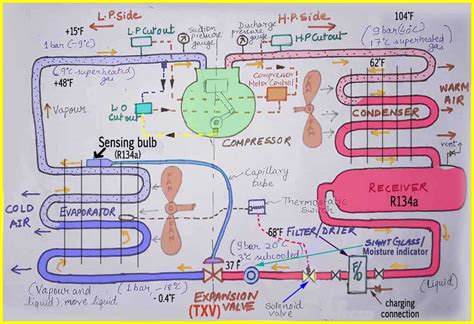 L.P. Side
H.P. Side
+15°F
L.P Cutout
Suction
pressure
gauge
Discharge
pressure
gauge
H.P Cutout
104°F
1 bar (-9°C)
9 bar (40°C)
17°C superheated
gas
(9°C superheated)
gas
+48°F
62°F
Compressor
Motor Control
WARM
AIR
Vapour
L.O
Cutout
FAN
CONDENSER
COMPRESSOR
vent
Sensing bulb
(R134a)
Capillary
tube
RECEIVER
R134a
COLD
AIR
EVAPORATOR
FAN
Thermostatic
Switch
68°F
FILTER/DRIER
9 bar 20°C
2°C subcooled
SIGHT GLASS/
Moisture indicator
37°F
(Vapour and
liquid), more liquid
(1 bar -18°C)
-0.4°F
EXPANSION
VALVE
(TXV)
Solenoid
valve
charging
connection
(liquid)